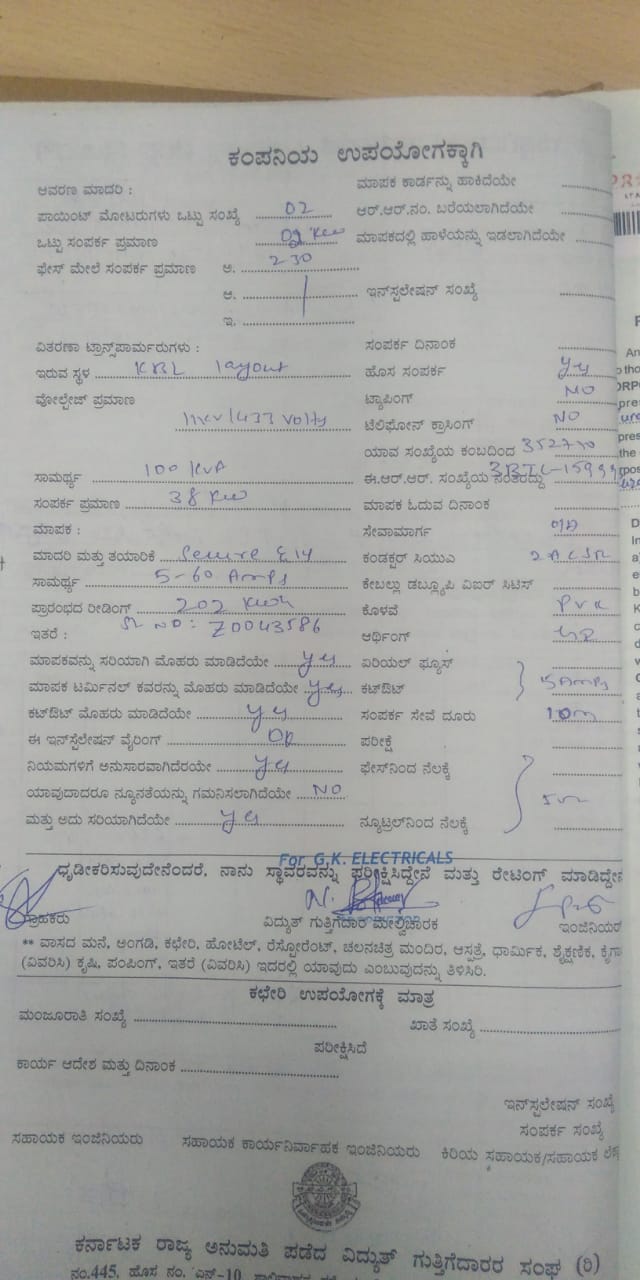 ಕಂಪನಿಯ ಉಪಯೋಗಕ್ಕಾಗಿ
ಆವರಣ ಮಾದರಿ :
ಮಾಪಕ ಕಾರ್ಡನ್ನು ಹಾಕಿದೆಯೇ
ಪಾಯಿಂಟ್ ಮೋಟರುಗಳು ಒಟ್ಟು ಸಂಖ್ಯೆ 02
ಆರ್.ಆರ್.ನಂ. ಬರೆಯಲಾಗಿದೆಯೇ
ಒಟ್ಟು ಸಂಪರ್ಕ ಪ್ರಮಾಣ Kw
ಮಾಪಕದಲ್ಲಿ ಹಾಳೆಯನ್ನು ಇಡಲಾಗಿದೆಯೇ
ಫೇಸ್ ಮೇಲೆ ಸಂಪರ್ಕ ಪ್ರಮಾಣ ಅ. 230
ಆ.
ಇನ್‌ಸ್ಟಲೇಷನ್ ಸಂಖ್ಯೆ
ಇ.
ವಿತರಣಾ ಟ್ರಾನ್ಸ್‌ಫಾರ್ಮರುಗಳು :
ಸಂಪರ್ಕ ದಿನಾಂಕ
ಇರುವ ಸ್ಥಳ KBL layout
ಹೊಸ ಸಂಪರ್ಕ yes
ವೋಲ್ಟೇಜ್ ಪ್ರಮಾಣ
ಟ್ಯಾಪಿಂಗ್ NO
11kv/433 Volts
ಟೆಲಿಫೋನ್ ಕ್ರಾಸಿಂಗ್ NO
ಯಾವ ಸಂಖ್ಯೆಯ ಕಂಬದಿಂದ
ಸಾಮರ್ಥ್ಯ 100 KVA
ಈ.ಆರ್.ಆರ್. ಸಂಖ್ಯೆಯ ನಂತರದ್ದು
ಸಂಪರ್ಕ ಪ್ರಮಾಣ 38 Kw
ಮಾಪಕ ಓದುವ ದಿನಾಂಕ
ಮಾಪಕ :
ಸೇವಾಮಾರ್ಗ
ಮಾದರಿ ಮತ್ತು ತಯಾರಿಕೆ Secure
ಕಂಡಕ್ಟರ್ ಸಿಯುಎ 2 ACSR
ಸಾಮರ್ಥ್ಯ 5-60 Amps
ಕೇಬಲ್ಲು ಡಬ್ಲ್ಯೂಪಿ ವಿಐರ್ ಸಿಟಿಸ್
ಪ್ರಾರಂಭದ ರೀಡಿಂಗ್ 202 Kwh
ಕೊಳವೆ PVC
ಇತರೆ : SL NO: Z0043586
ಆರ್ಥಿಂಗ್
ಮಾಪಕವನ್ನು ಸರಿಯಾಗಿ ಮೊಹರು ಮಾಡಿದೆಯೇ yes
ಏರಿಯಲ್ ಫ್ಯೂಸ್
ಮಾಪಕ ಟರ್ಮಿನಲ್ ಕವರನ್ನು ಮೊಹರು ಮಾಡಿದೆಯೇ yes
ಕಟ್‌ಔಟ್ 15 Amps
ಕಟ್‌ಔಟ್ ಮೊಹರು ಮಾಡಿದೆಯೇ yes
ಸಂಪರ್ಕ ಸೇವೆ ದೂರು 10m
ಈ ಇನ್‌ಸ್ಟೆಲೇಷನ್ ವೈರಿಂಗ್
ಪರೀಕ್ಷೆ
ನಿಯಮಗಳಿಗೆ ಅನುಸಾರವಾಗಿದೆರಯೇ yes
ಫೇಸ್‌ನಿಂದ ನೆಲಕ್ಕೆ
ಯಾವುದಾದರೂ ನ್ಯೂನತೆಯನ್ನು ಗಮನಿಸಲಾಗಿದೆಯೇ NO
ಮತ್ತು ಅದು ಸರಿಯಾಗಿದೆಯೇ yes
ನ್ಯೂಟ್ರಲ್‌ನಿಂದ ನೆಲಕ್ಕೆ
For G.K. ELECTRICALS
ಧೃಡೀಕರಿಸುವುದೇನೆಂದರೆ, ನಾನು ಸ್ಥಾವರವನ್ನು ಪರೀಕ್ಷಿಸಿದ್ದೇನೆ ಮತ್ತು ರೇಟಿಂಗ್ ಮಾಡಿದ್ದೇನೆ
ಗ್ರಾಹಕರು
ವಿದ್ಯುತ್ ಗುತ್ತಿಗೆದಾರ ಮೇಲ್ವಿಚಾರಕ
ಇಂಜಿನಿಯರ
** ವಾಸದ ಮನೆ, ಅಂಗಡಿ, ಕಛೇರಿ, ಹೋಟೆಲ್, ರೆಸ್ಟೋರೆಂಟ್, ಚಲನಚಿತ್ರ ಮಂದಿರ, ಆಸ್ಪತ್ರೆ, ಧಾರ್ಮಿಕ, ಶೈಕ್ಷಣಿಕ, ಕೈಗಾ
(ವಿವರಿಸಿ) ಕೃಷಿ, ಪಂಪಿಂಗ್, ಇತರೆ (ವಿವರಿಸಿ) ಇದರಲ್ಲಿ ಯಾವುದು ಎಂಬುವುದನ್ನು ತಿಳಿಸಿರಿ.
ಕಛೇರಿ ಉಪಯೋಗಕ್ಕೆ ಮಾತ್ರ
ಮಂಜೂರಾತಿ ಸಂಖ್ಯೆ
ಖಾತೆ ಸಂಖ್ಯೆ
ಪರೀಕ್ಷಿಸಿದೆ
ಕಾರ್ಯ ಆದೇಶ ಮತ್ತು ದಿನಾಂಕ
ಇನ್‌ಸ್ಟಲೇಷನ್ ಸಂಖ್ಯೆ
ಸಂಪರ್ಕ ಸಂಖ್ಯೆ
ಸಹಾಯಕ ಇಂಜಿನಿಯರು
ಸಹಾಯಕ ಕಾರ್ಯನಿರ್ವಾಹಕ ಇಂಜಿನಿಯರು
ಕಿರಿಯ ಸಹಾಯಕ/ಸಹಾಯಕ
ಕರ್ನಾಟಕ ರಾಜ್ಯ ಅನುಮತಿ ಪಡೆದ ವಿದ್ಯುತ್ ಗುತ್ತಿಗೆದಾರರ ಸಂಘ (ರಿ)
ನಂ.445, ಹೊಸ ನಂ.